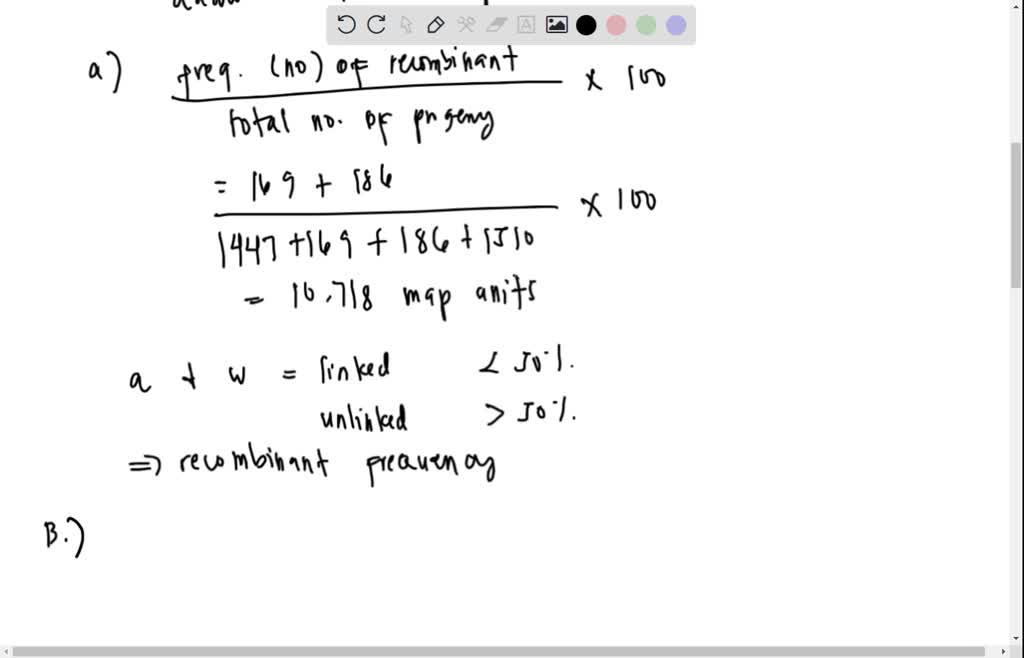 a) freq. (no) of recombinant × 100
total no. of progeny
= 169 + 186 × 100
1447 + 169 + 186 + 1510
= 10.718 map units
a + w = linked < 50%.
unlinked > 50%.
⇒ recombinant frequency
B.)